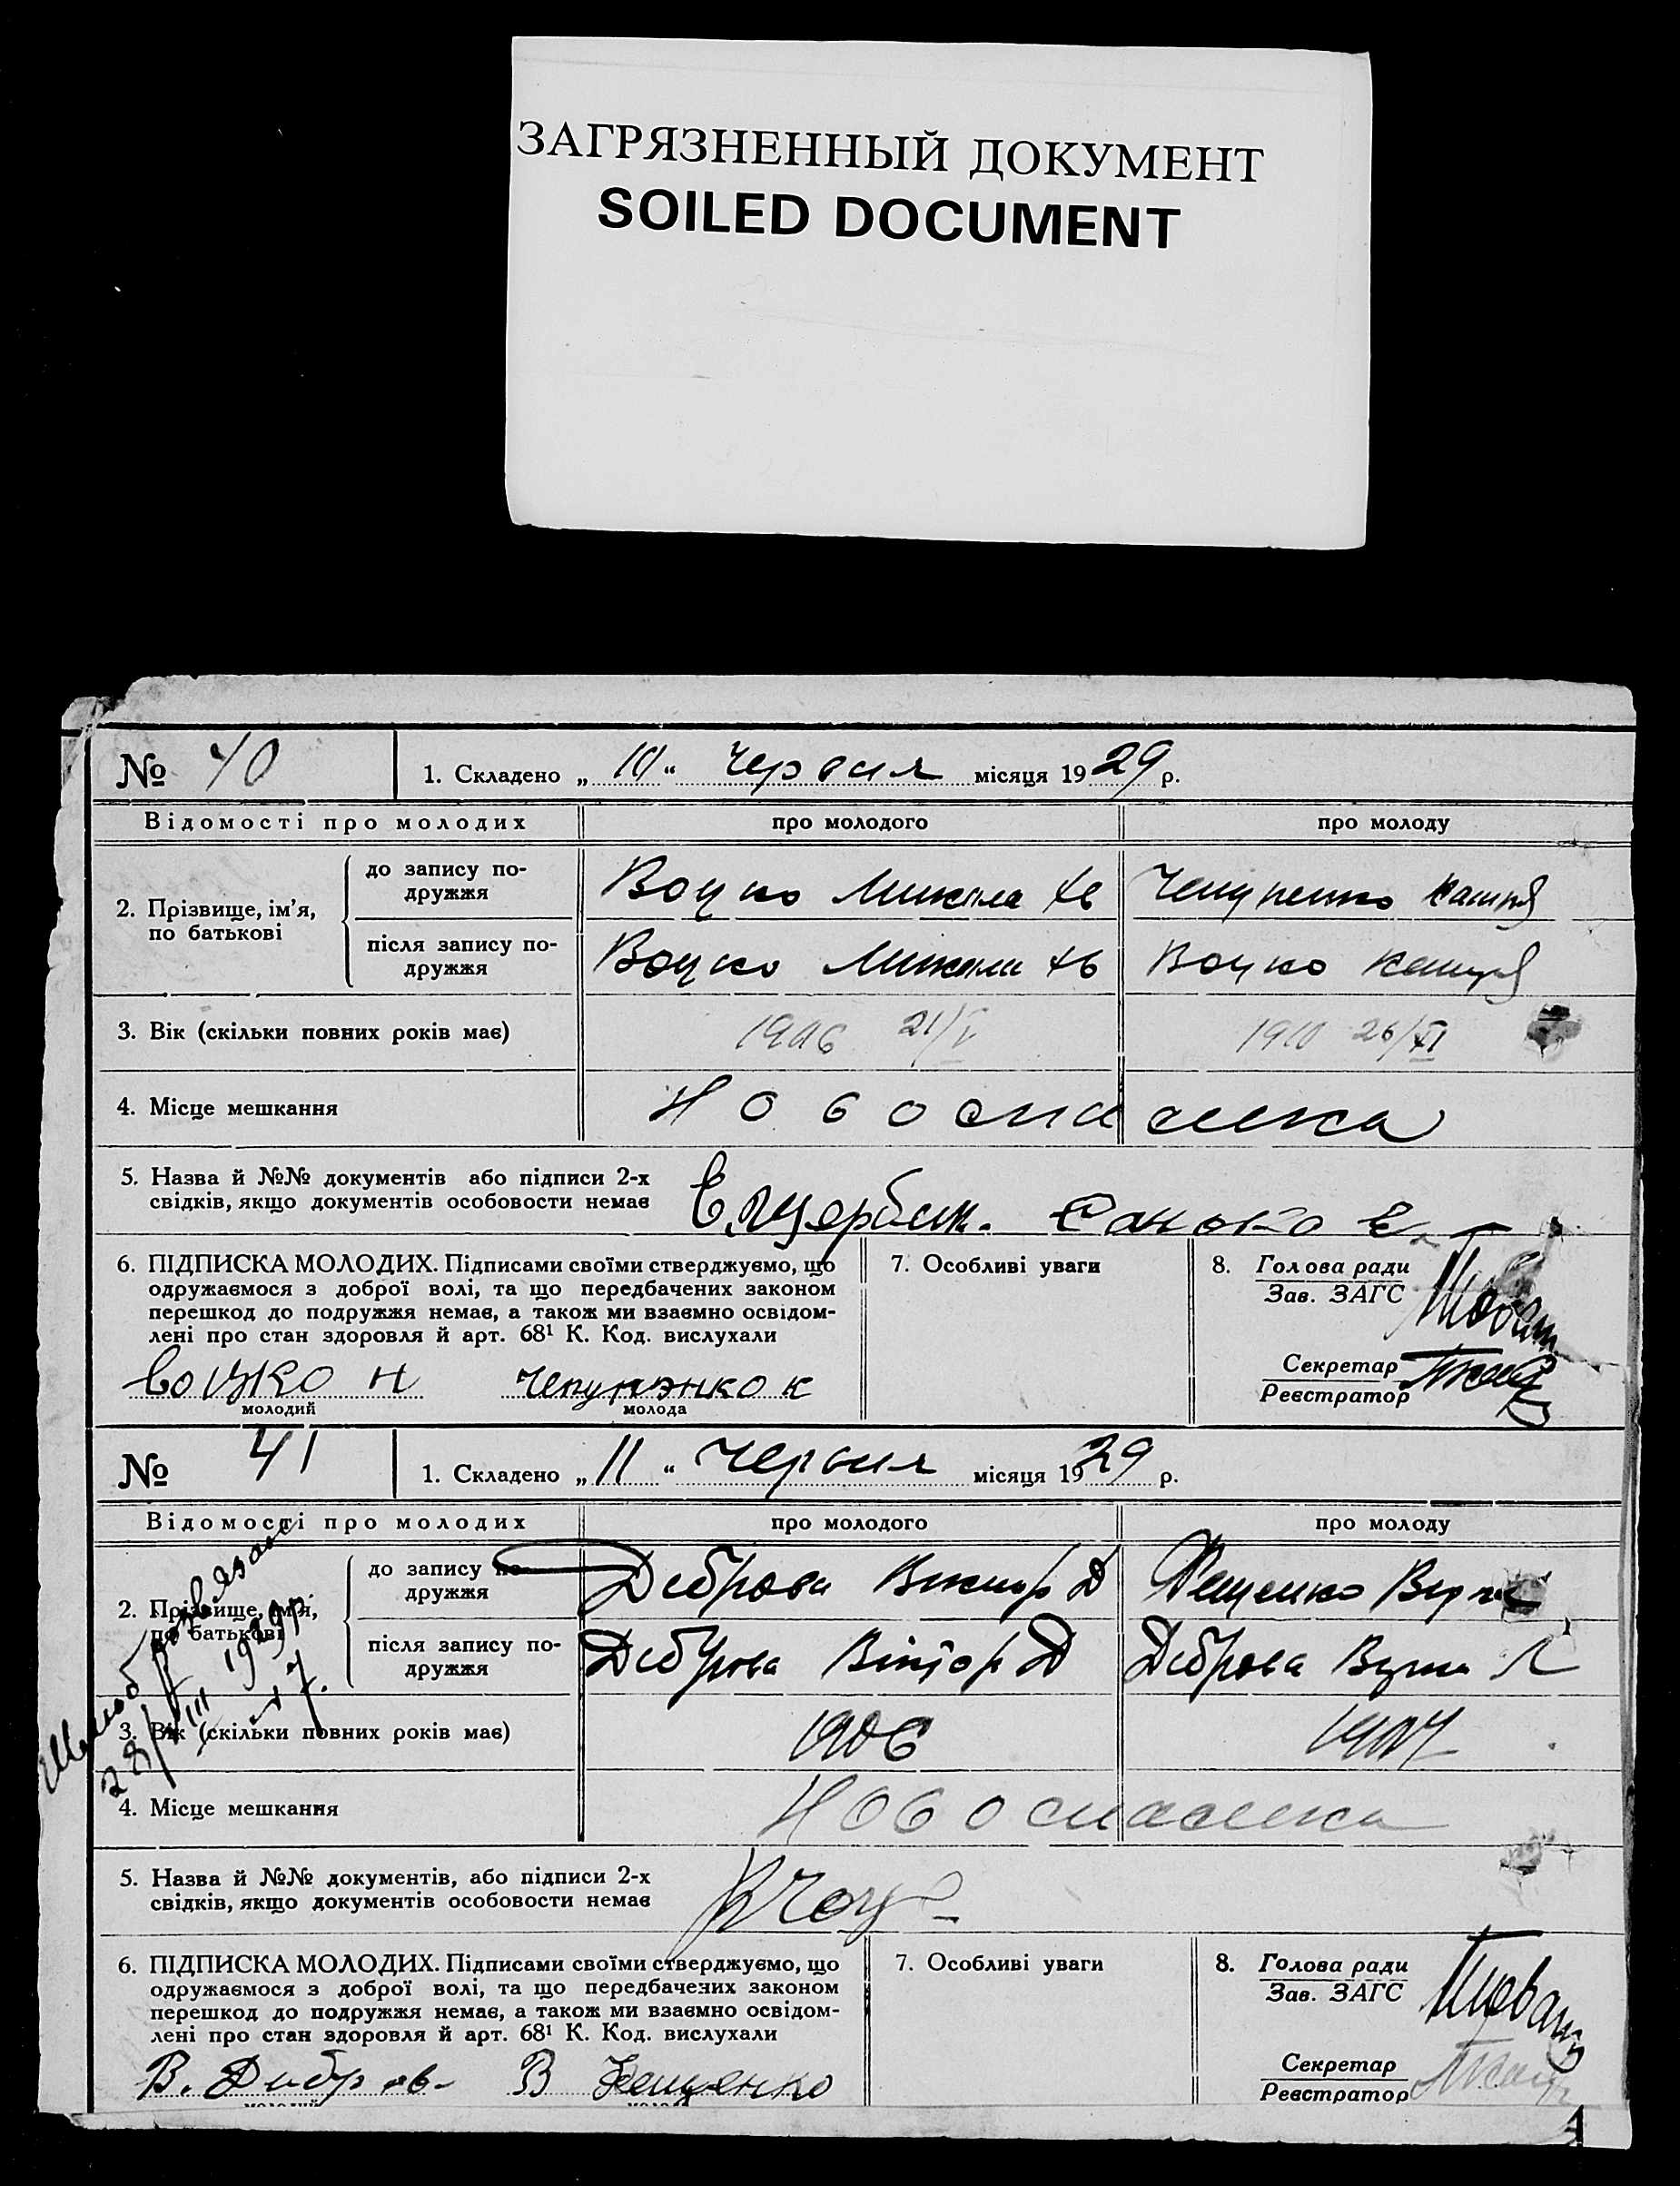 ЗАГРЯЗНЕННЫЙ ДОКУМЕНТ
SOILED DOCUMENT
№ 40
1. Складено „ 10 “ Червня місяця 1929 р.
Відомості про молодих про молодого про молоду
2. Прізвище, ім’я, по батькові
до запису по-
дружжя
Воцко Микола
після запису по-
дружжя
Воцко Микола Воцко
3. Вік (скільки повних років має) 1906 21/V 1910 26/XI
4. Місце мешкання Новоспаська
5. Назва й №№ документів або підписи 2-х
свідків, якщо документів особовости немає
6. ПІДПИСКА МОЛОДИХ. Підписами своїми стверджуємо, що
одружаємося з доброї волі, та що передбачених законом
перешкод до подружжя немає, а також ми взаємно освідом-
лені про стан здоровля й арт. 68¹ К. Код. вислухали
Воцко Н Чепурэнко К
молодий молода
7. Особливі уваги
8. Голова ради
Зав. ЗАГС
Секретар
Реєстратор
№ 41
1. Складено „ 11 “ Червня місяця 1929 р.
Відомості про молодих про молодого про молоду
2. Прізвище, ім’я,
по батькові
до запису по-
дружжя
Діброва Виктор Д
після запису по-
дружжя
Діброва Віктор Д Діброва
3. Вік (скільки повних років має) 1906 1907
4. Місце мешкання Новоспаська
Шлюб розвязано
28/VIII 1929р.
№ 7.
5. Назва й №№ документів, або підписи 2-х
свідків, якщо документів особовости немає
6. ПІДПИСКА МОЛОДИХ. Підписами своїми стверджуємо, що
одружаємося з доброї волі, та що передбачених законом
перешкод до подружжя немає, а також ми взаємно освідом-
лені про стан здоровля й арт. 68¹ К. Код. вислухали
В. Дибров
молодий
7. Особливі уваги
8. Голова ради
Зав. ЗАГС
Секретар
Реєстратор